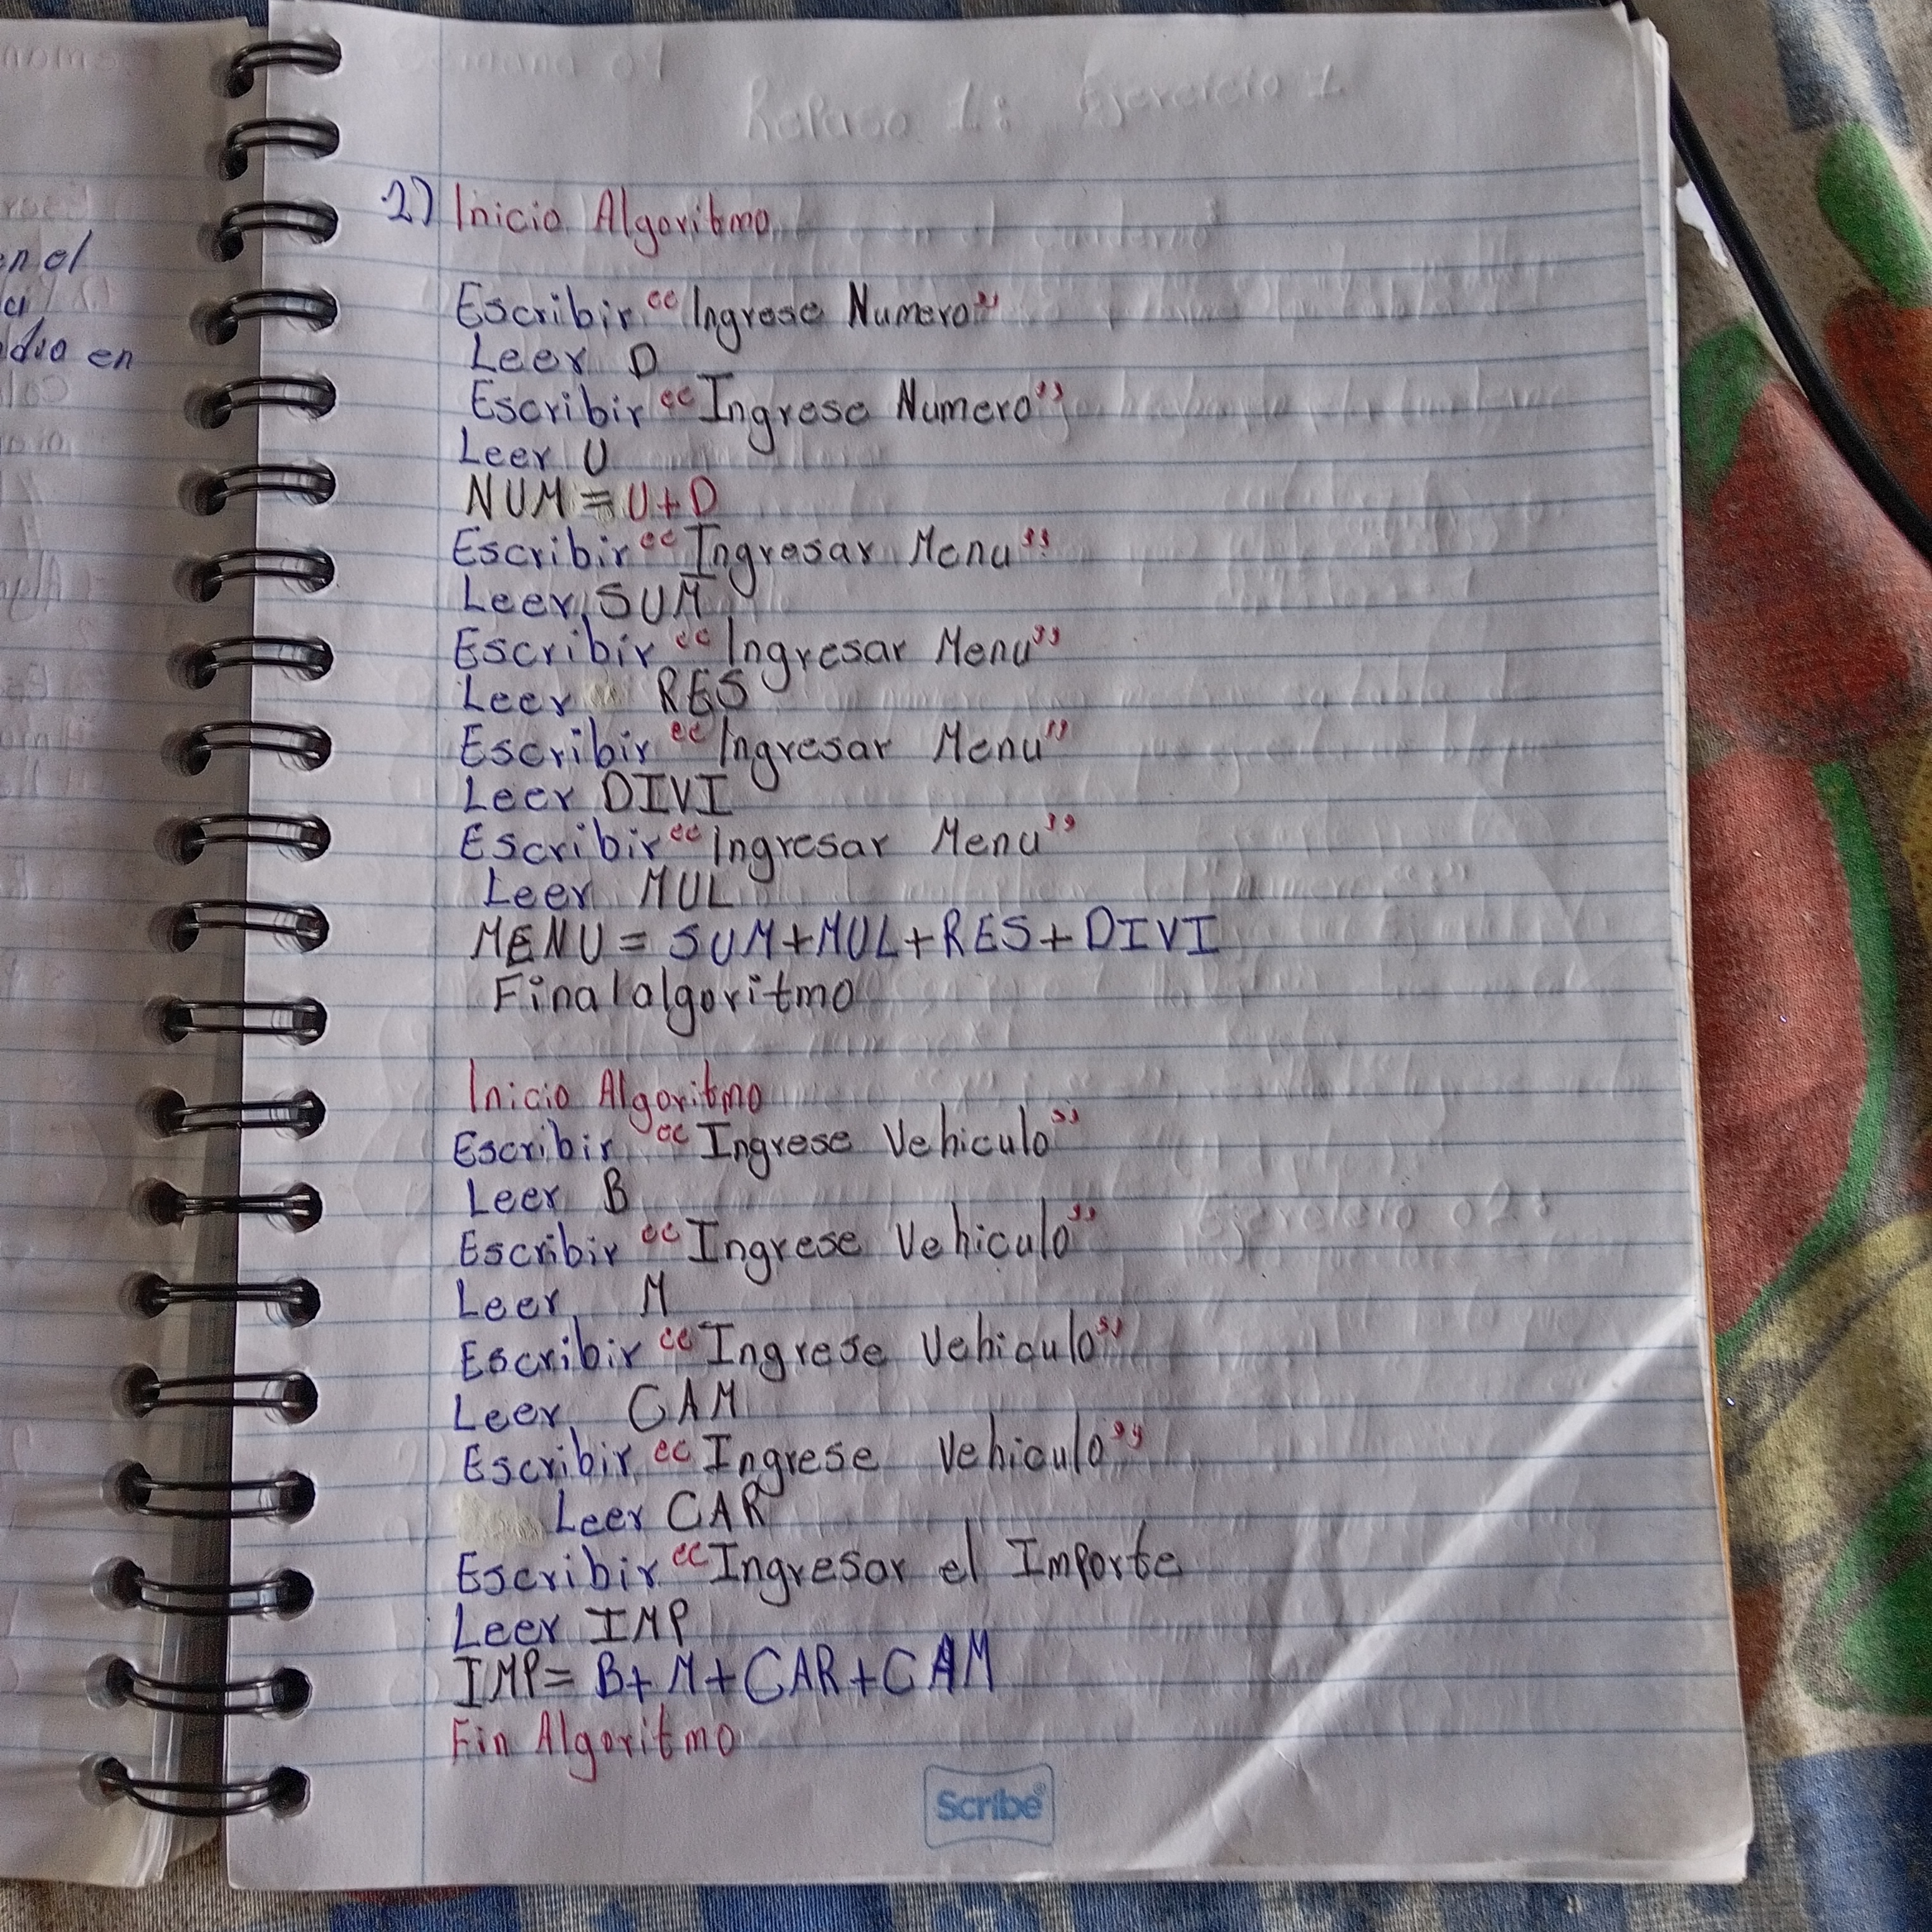 en el
dia en
2) Inicio Algoritmo
Escribir "Ingrese Numero"
Leer D
Escribir "Ingrese Numero"
Leer U
NUM = U+D
Escribir "Ingresar Menu"
Leer SUM
Escribir "Ingresar Menu"
Leer RES
Escribir "Ingresar Menu"
Leer DIVI
Escribir "Ingresar Menu"
Leer MUL
MENU = SUM+MUL+RES+DIVI
Final algoritmo
Inicio Algoritmo
Escribir "Ingrese Vehiculo"
Leer B
Escribir "Ingrese Vehiculo"
Leer M
Escribir "Ingrese Vehiculo"
Leer CAM
Escribir "Ingrese Vehiculo"
Leer CAR
Escribir "Ingresar el Importe
Leer IMP
IMP= B+M+CAR+CAM
Fin Algoritmo
Scribe®